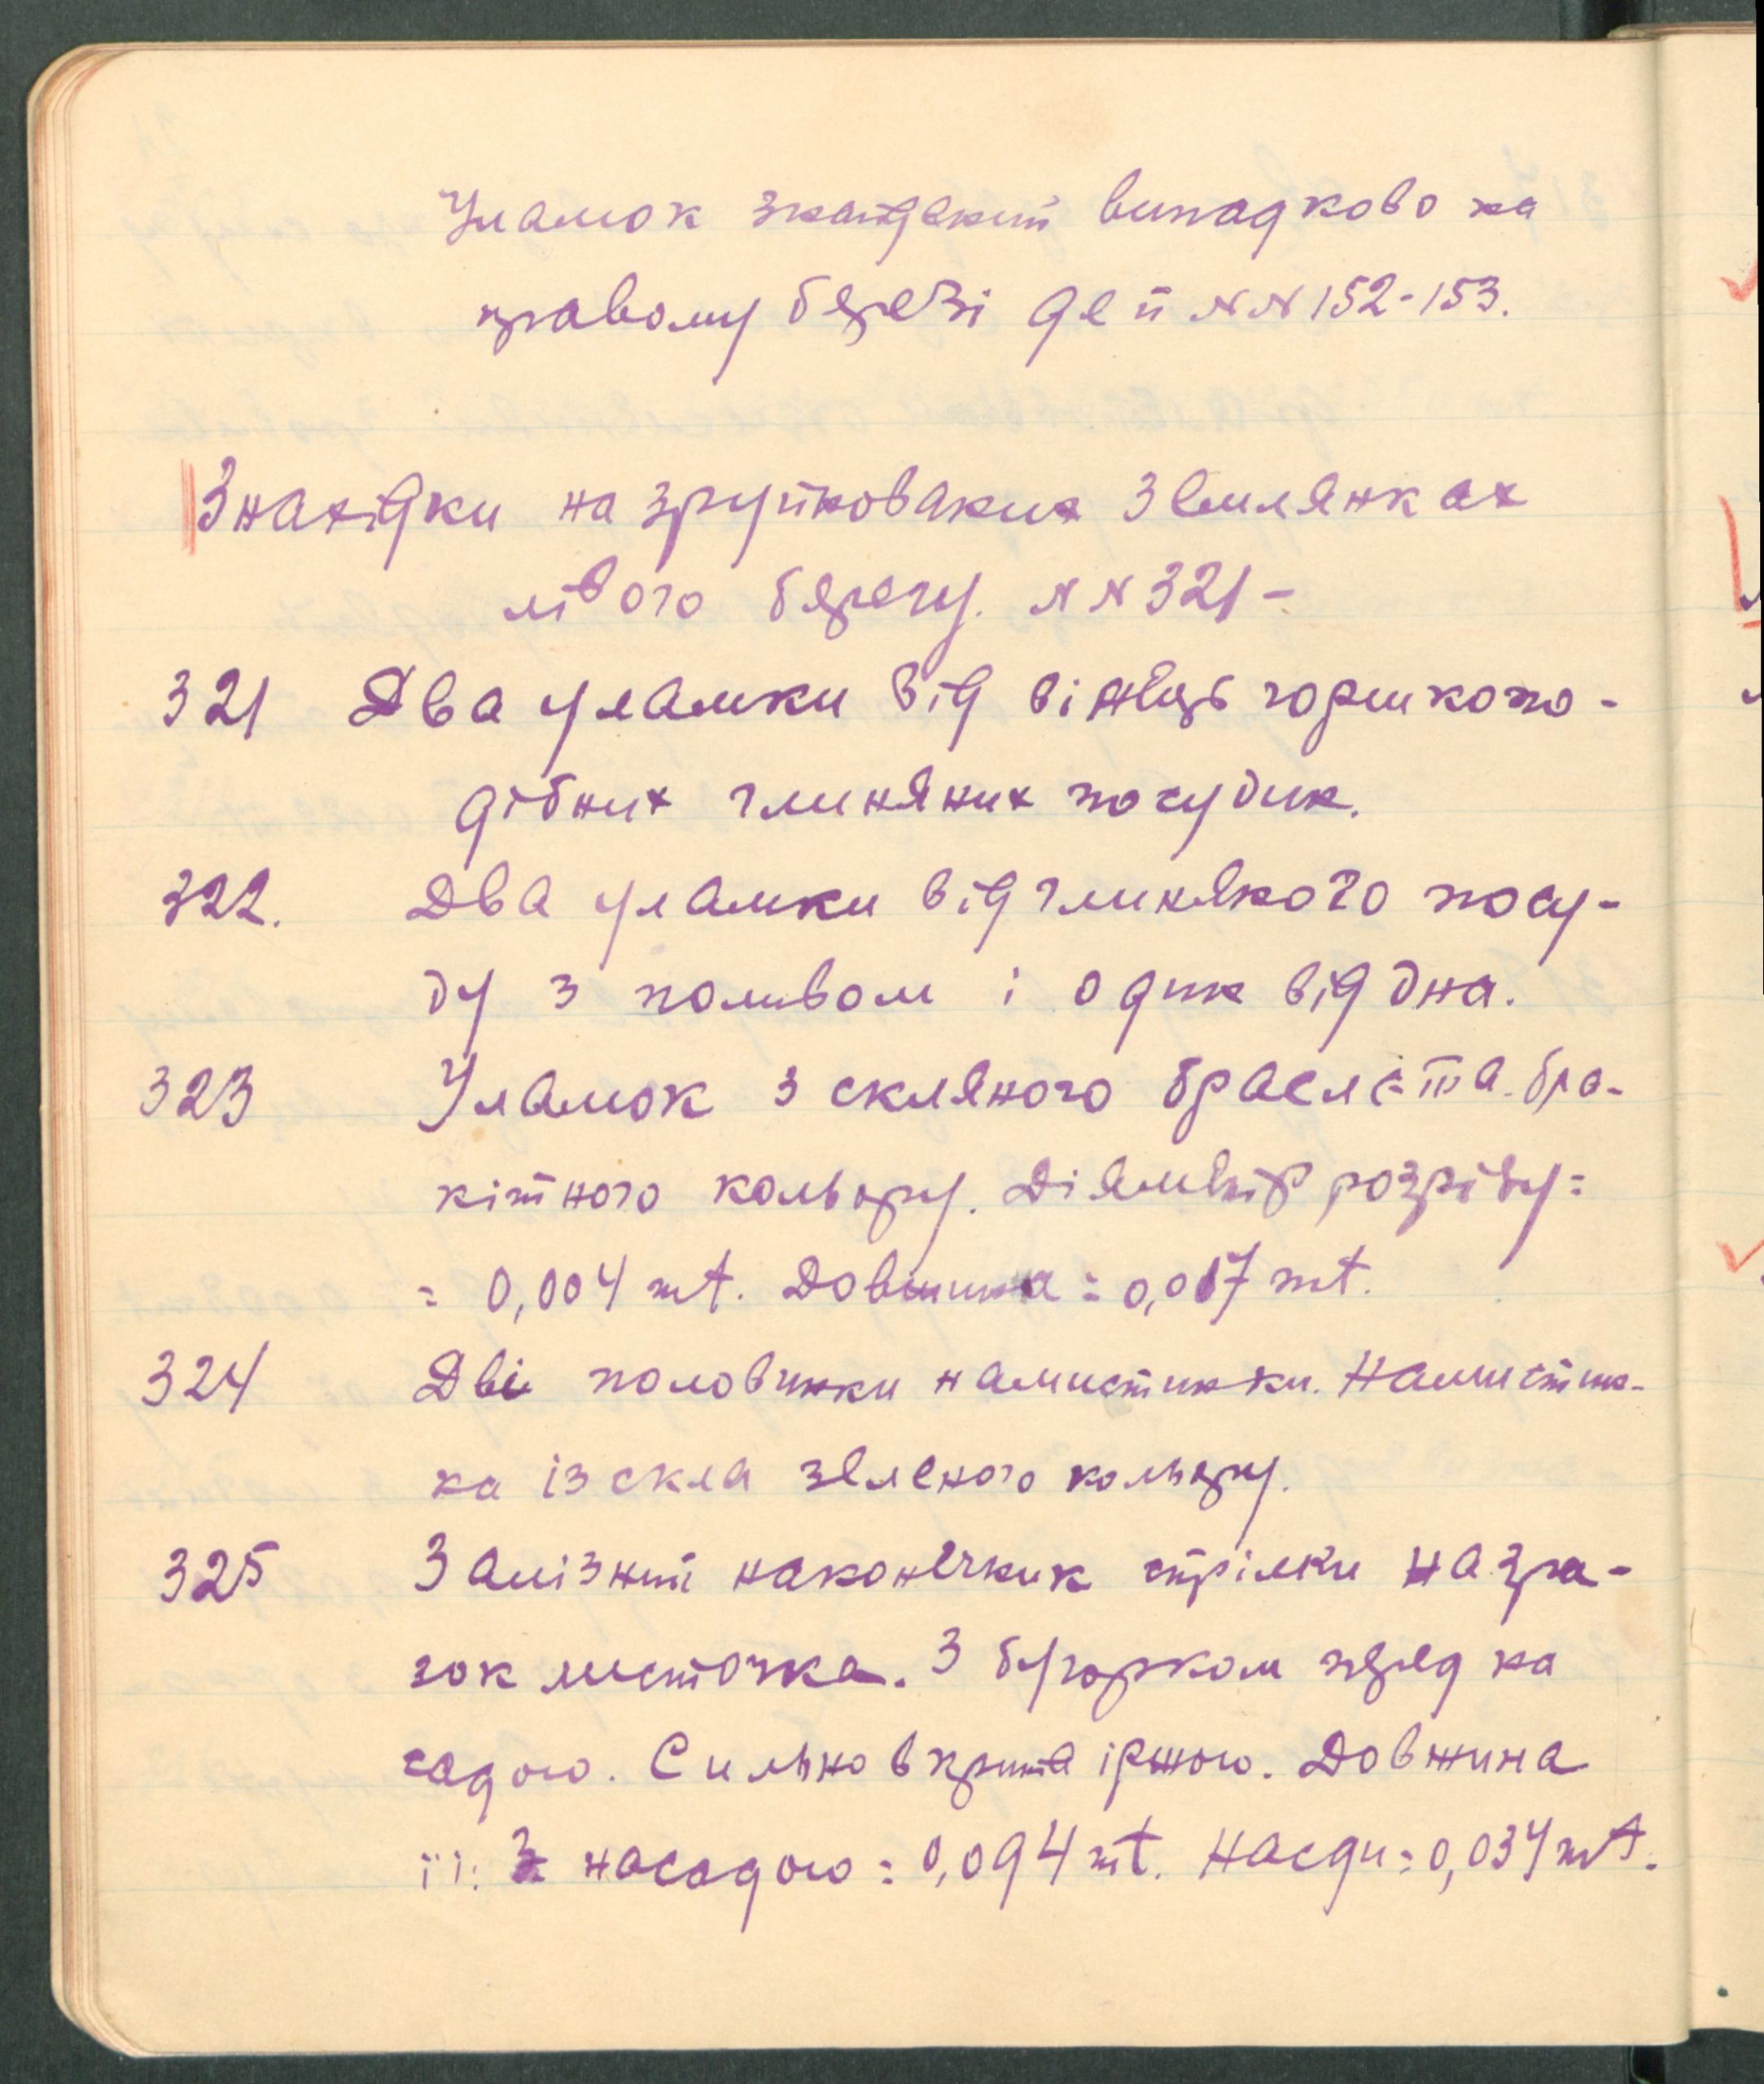 Уламок знайдений випадково на
правому березі де й NN 152-153.
Знахідки на зруйнованих землянках
лівого берегу. NN 321-
321 Два уламки від вінець горшкопо-
дібних глиняних посудин.
322. Два уламки від глиняного посу-
ду з поливом і один від дна.
323 Уламок з скляного браслета бла-
кітного кольору. Діяметр розрізу =
= 0,004 mt. Довжина = 0,017 mt.
324 Дві половинки намистинки. Намистин-
ка із скла зеленого кольору.
325 Залізний наконечник стрілки на зра-
зок листочка. З бугорком перед на
садою. Сильно вкрита іржою. Довжина
її: з насадою = 0,094 mt. Насди = 0,034 mt.